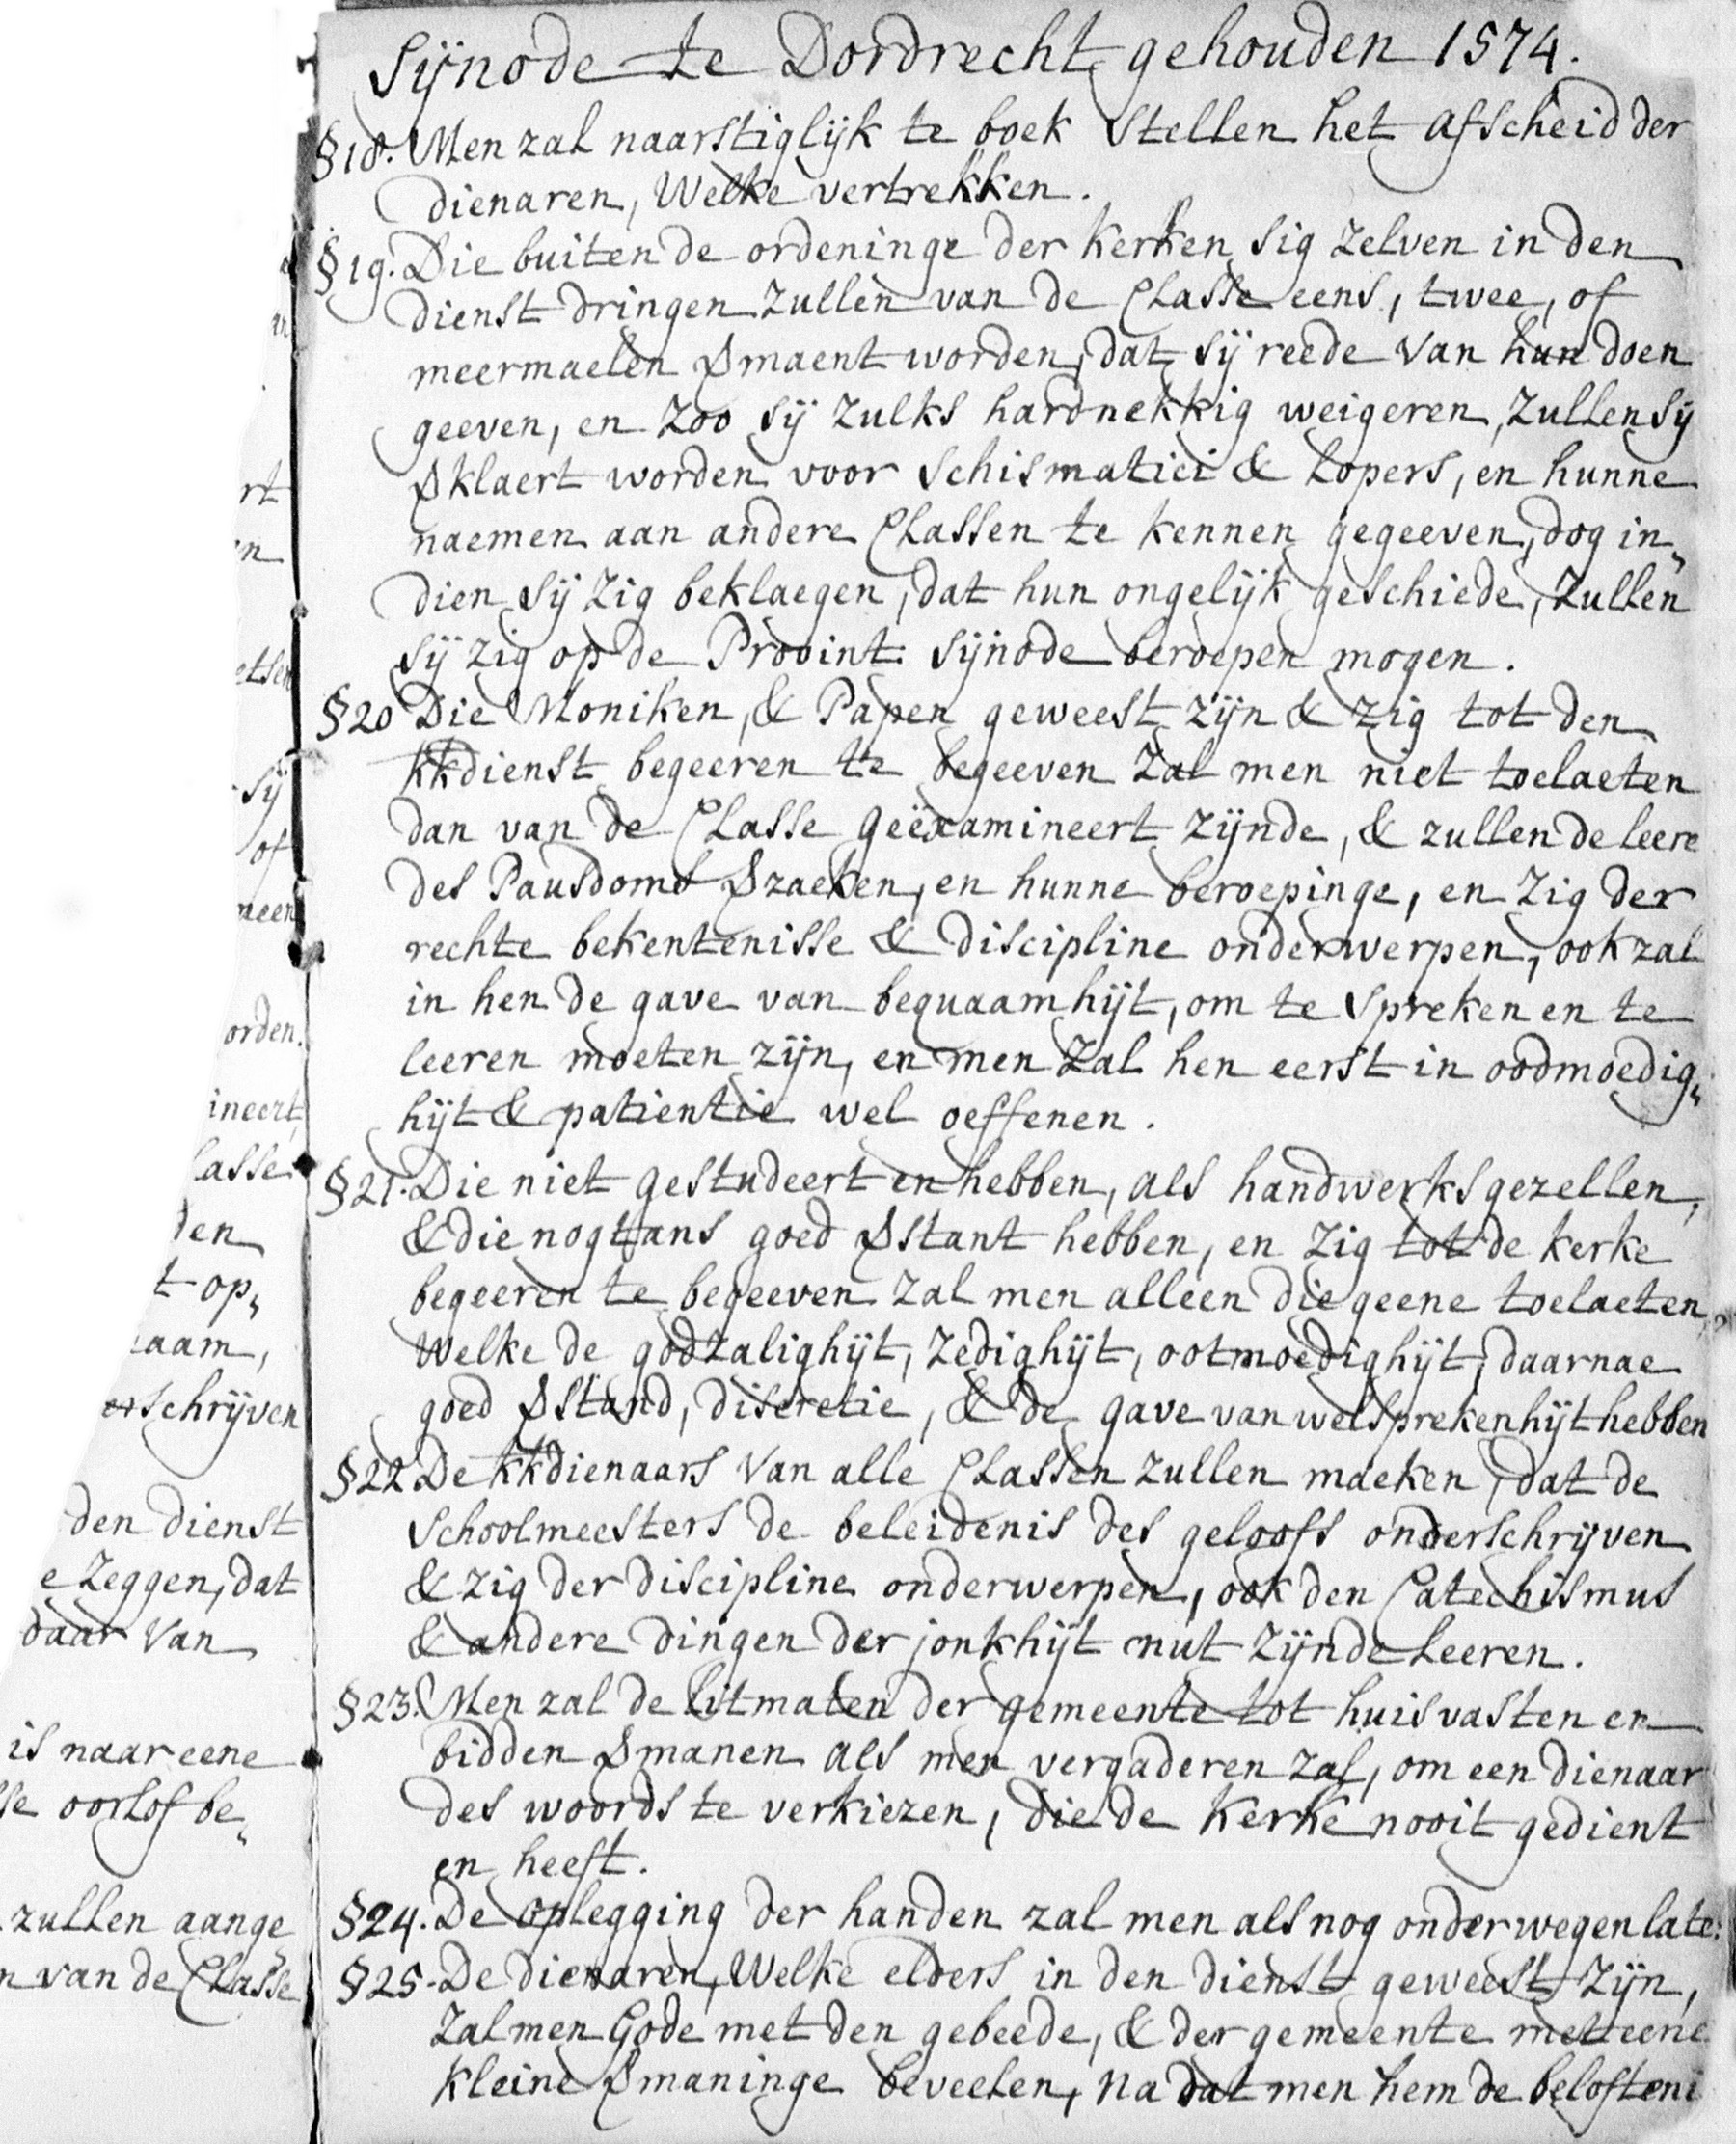 Sÿnode te Dordrecht gehouden 1574.
§18. Men zal naarstiglÿk te boek stellen het afscheid der
dienaren, Welke vertrekken.
§19. Die buiten de ordeninge der kerken sig zelven in den
dienst dringen zullen van de Classe eens, twee, of
meermaelen ꝟmaent worden, dat sÿ reede van hun doen
geeven, en zoo sÿ zulks hardnekkig weigeren, zullen sÿ
ꝟklaert worden voor Schismatici & Lopers, en hunne
naemen aan andere Classen te kennen gegeeven, dog in„
dien sÿ zig beklaegen, dat hun ongelÿk geschiede, zullen
sÿ zig op de Provint: Sÿnode beroepen mogen.
§20 Die Moniken, & Papen geweest zÿn & zig tot den
kkdienst begeeren te begeeven zal men niet toelaeten
dan van de Classe geëxamineert zÿnde, & zullen de leere
des Pausdoms ꝟzaeken, en hunne beroepinge, en zig der
rechte bekentenisse & discipline onderwerpen, ook zal
in hen de gave van bequaamhÿt, om te spreken en te
leeren moeten zÿn, en men zal hen eerst in oodmoedig„
hÿt & patientie wel oeffenen.
§21. Die niet gestudeert en hebben, als handwerksgezellen,
& die nogtans goed ꝟstant hebben, en zig tot de kerke
begeeren te begeeven zal men alleen die geene toelaeten,
Welke de godzalighÿt, zedighÿt, ootmoedighÿt, daarnae
goed ꝟstand, discretie, & de gave van welsprekenhÿt hebben
§22 De kkdienaars van alle Classen zullen maeken, dat de
Schoolmeesters de beleidenis des geloofs onderschrÿven
& zig der discipline onderwerpen, ook den Catechismus
& andere dingen der jonkhÿt nut zÿnde leeren.
§23. Men zal de Litmaten der gemeente tot huisvasten en
bidden ꝟmanen als men vergaderen zal, om een dienaar
des woords te verkiezen, die de kerke nooit gedient
en heeft.
§24. De oplegging der handen zal men als nog onderwegen late:
§25. De dienaren, Welke elders in den dienst geweest zÿn,
zal men Gode met den gebeede, & der gemeente met eene
kleine ꝟmaninge beveelen, na dat men hem de beloften i
rt
en
etsen
sÿ
of
meen
orden.
ineert,
lasse
den
t op„
aam,
erschrÿven
den dienst
e zeggen, dat
daar van
is naar eene
sse oorlof be„
zullen aange
n van de Classe